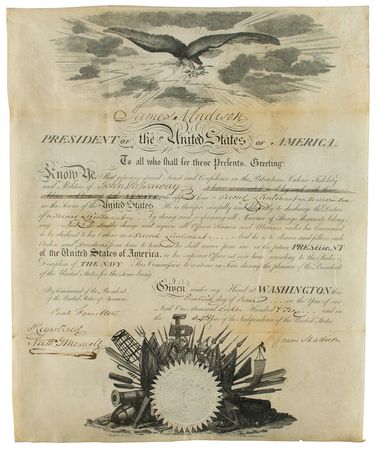 James Madison,
PRESIDENT of the United States of AMERICA.
To all who shall see these Presents, Greeting:
Know Ye, That reposing special Trust and Confidence in the Patriotism, Valour, Fidelity,
and Abilities of John
SENATE a Second Lieutenant
in the Service of the United States
is therefore carefully and diligently to discharge the Duties
of a Second Lieutenant by doing and performing all Manner of Things thereunto belonging.
And do strictly charge and require all Officers Seamen and Marines under his Command
to be obedient to his Orders as a Second Lieutenant And he is to observe and follow such
Orders and Directions from time to time as he shall receive from me or the future PRESIDENT
of the United States of America, or the superior Officer set over him according to the Rules &
Discipline of THE NAVY. This Commission to continue in Force during the pleasure of the President
of the United States for the time being
Given under my Hand at WASHINGTON this
day of in the Year of our
Lord One thousand Eight Hundred & and in
the Year of the Independence of the United States
By Command of the President
of the United States of America
Paul Hamilton
Registered
James Madison